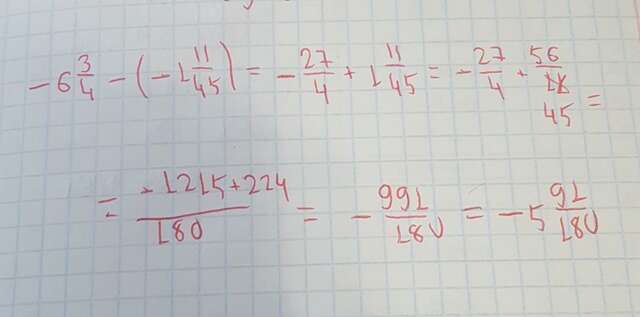 - 6 3/4 - (- 1 11/45) = - 27/4 + 1 11/45 = - 27/4 + 56/45 =
= - 1215 + 224 / 180 = - 991/180 = - 5 91/180